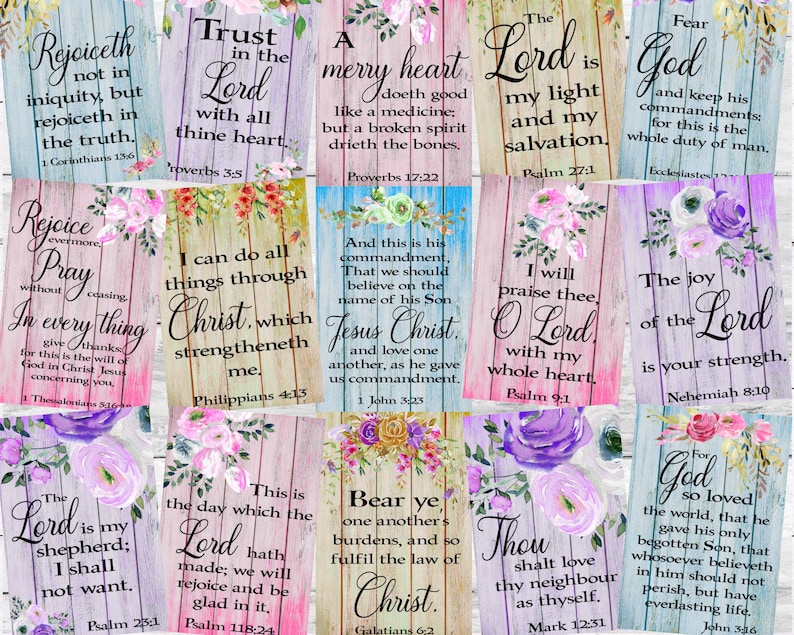 Rejoiceth
not in
iniquity, but
rejoiceth in
the truth.
1 Corinthians 13:6
Trust
in the
Lord
with all
thine heart.
Proverbs 3:5
A
merry heart
doeth good
like a medicine;
but a broken spirit
drieth the bones.
Proverbs 17:22
The
Lord is
my light
and my
salvation.
Psalm 27:1
Fear
God
and keep his
commandments:
for this is the
whole duty of man.
Ecclesiastes
Rejoice
evermore,
Pray
without ceasing,
In every thing
give thanks:
for this is the will of
God in Christ Jesus
concerning you.
1 Thessalonians 5:16-18
I can do all
things through
Christ, which
strengtheneth
me.
Philippians 4:13
And this is his
commandment,
That we should
believe on the
name of his Son
Jesus Christ,
and love one
another, as he gave
us commandment.
1 John 3:23
I will
praise thee,
O Lord,
with my
whole heart.
Psalm 9:1
The joy
of the Lord
is your strength.
Nehemiah 8:10
The
Lord is my
shepherd;
I shall
not want.
Psalm 23:1
This is
the day which the
Lord hath
made; we will
rejoice and be
glad in it.
Psalm 118:24
Bear ye,
one another's
burdens, and so
fulfil the law of
Christ.
Galatians 6:2
Thou
shalt love
thy neighbour
as thyself.
Mark 12:31
For
God
so loved
the world, that he
gave his only
begotten Son, that
whosoever believeth
in him should not
perish, but have
everlasting life.
John 3:16